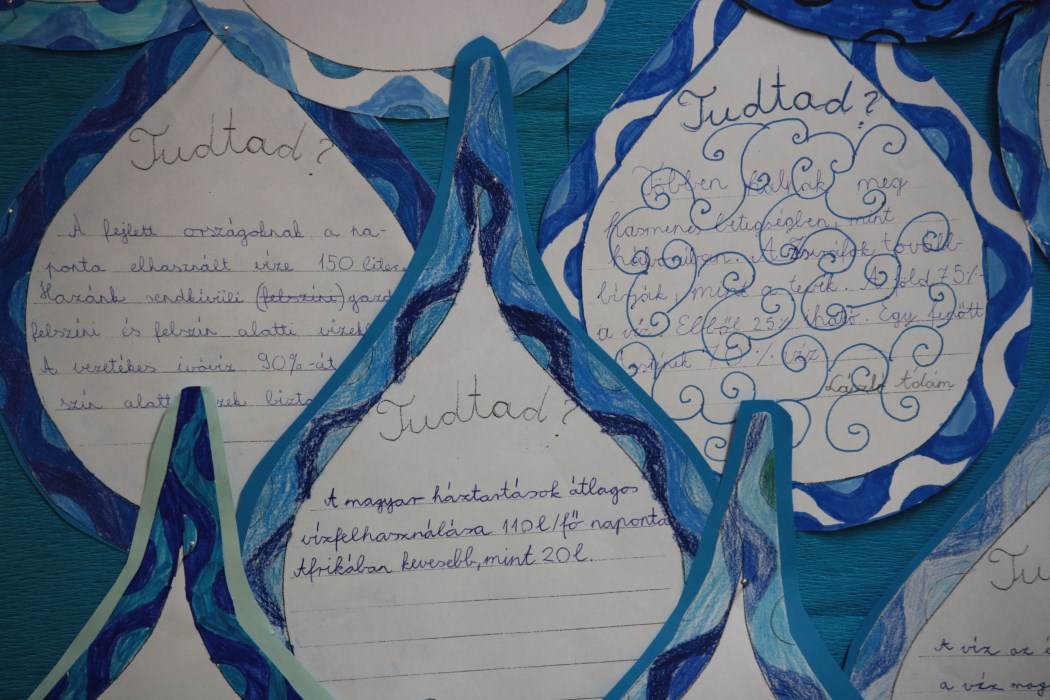 Tudtad?
A fejlett országoknak a na-
ponta elhasznált vize 150 liter.
Hazánk rendkívüli (felszíni) gazd
felszíni és felszín alatti vizek
A vezetékes ivóvíz 90%-át
szín alatt zek bizto
Tudtad?
Többen halnak meg
hasmenés betegségben, mint
háborúban. A zsiráfok tovább
bírják, mint a tevék. A föld 75%-
a víz. Ebből 25% iható. Egy felnőtt
75% víz
László Ádám
Tudtad?
A magyar háztartások átlagos
vízfelhasználása 110l/fő naponta
Afrikában kevesebb, mint 20l.
Tu
A víz az é
a víz mag